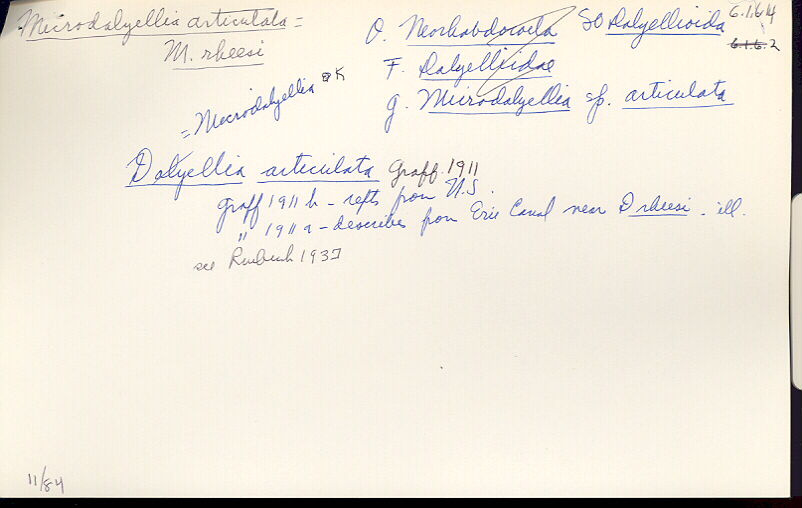 Microdalyellia articulata =
M. rheesi
O. Neorhabdocoela SO Dalyellioida 6.1.6.14
6.1.6.2
F. Dalyelliidae
g. Microdalyellia sp. articulata
= Microdalyellia OK
Dalyellia articulata Graff 1911
Graff 1911 b - repts from U.S.
" 1911 a - describes from Erie Canal near D rheesi. ill.
see Ruebush 1937
11/84